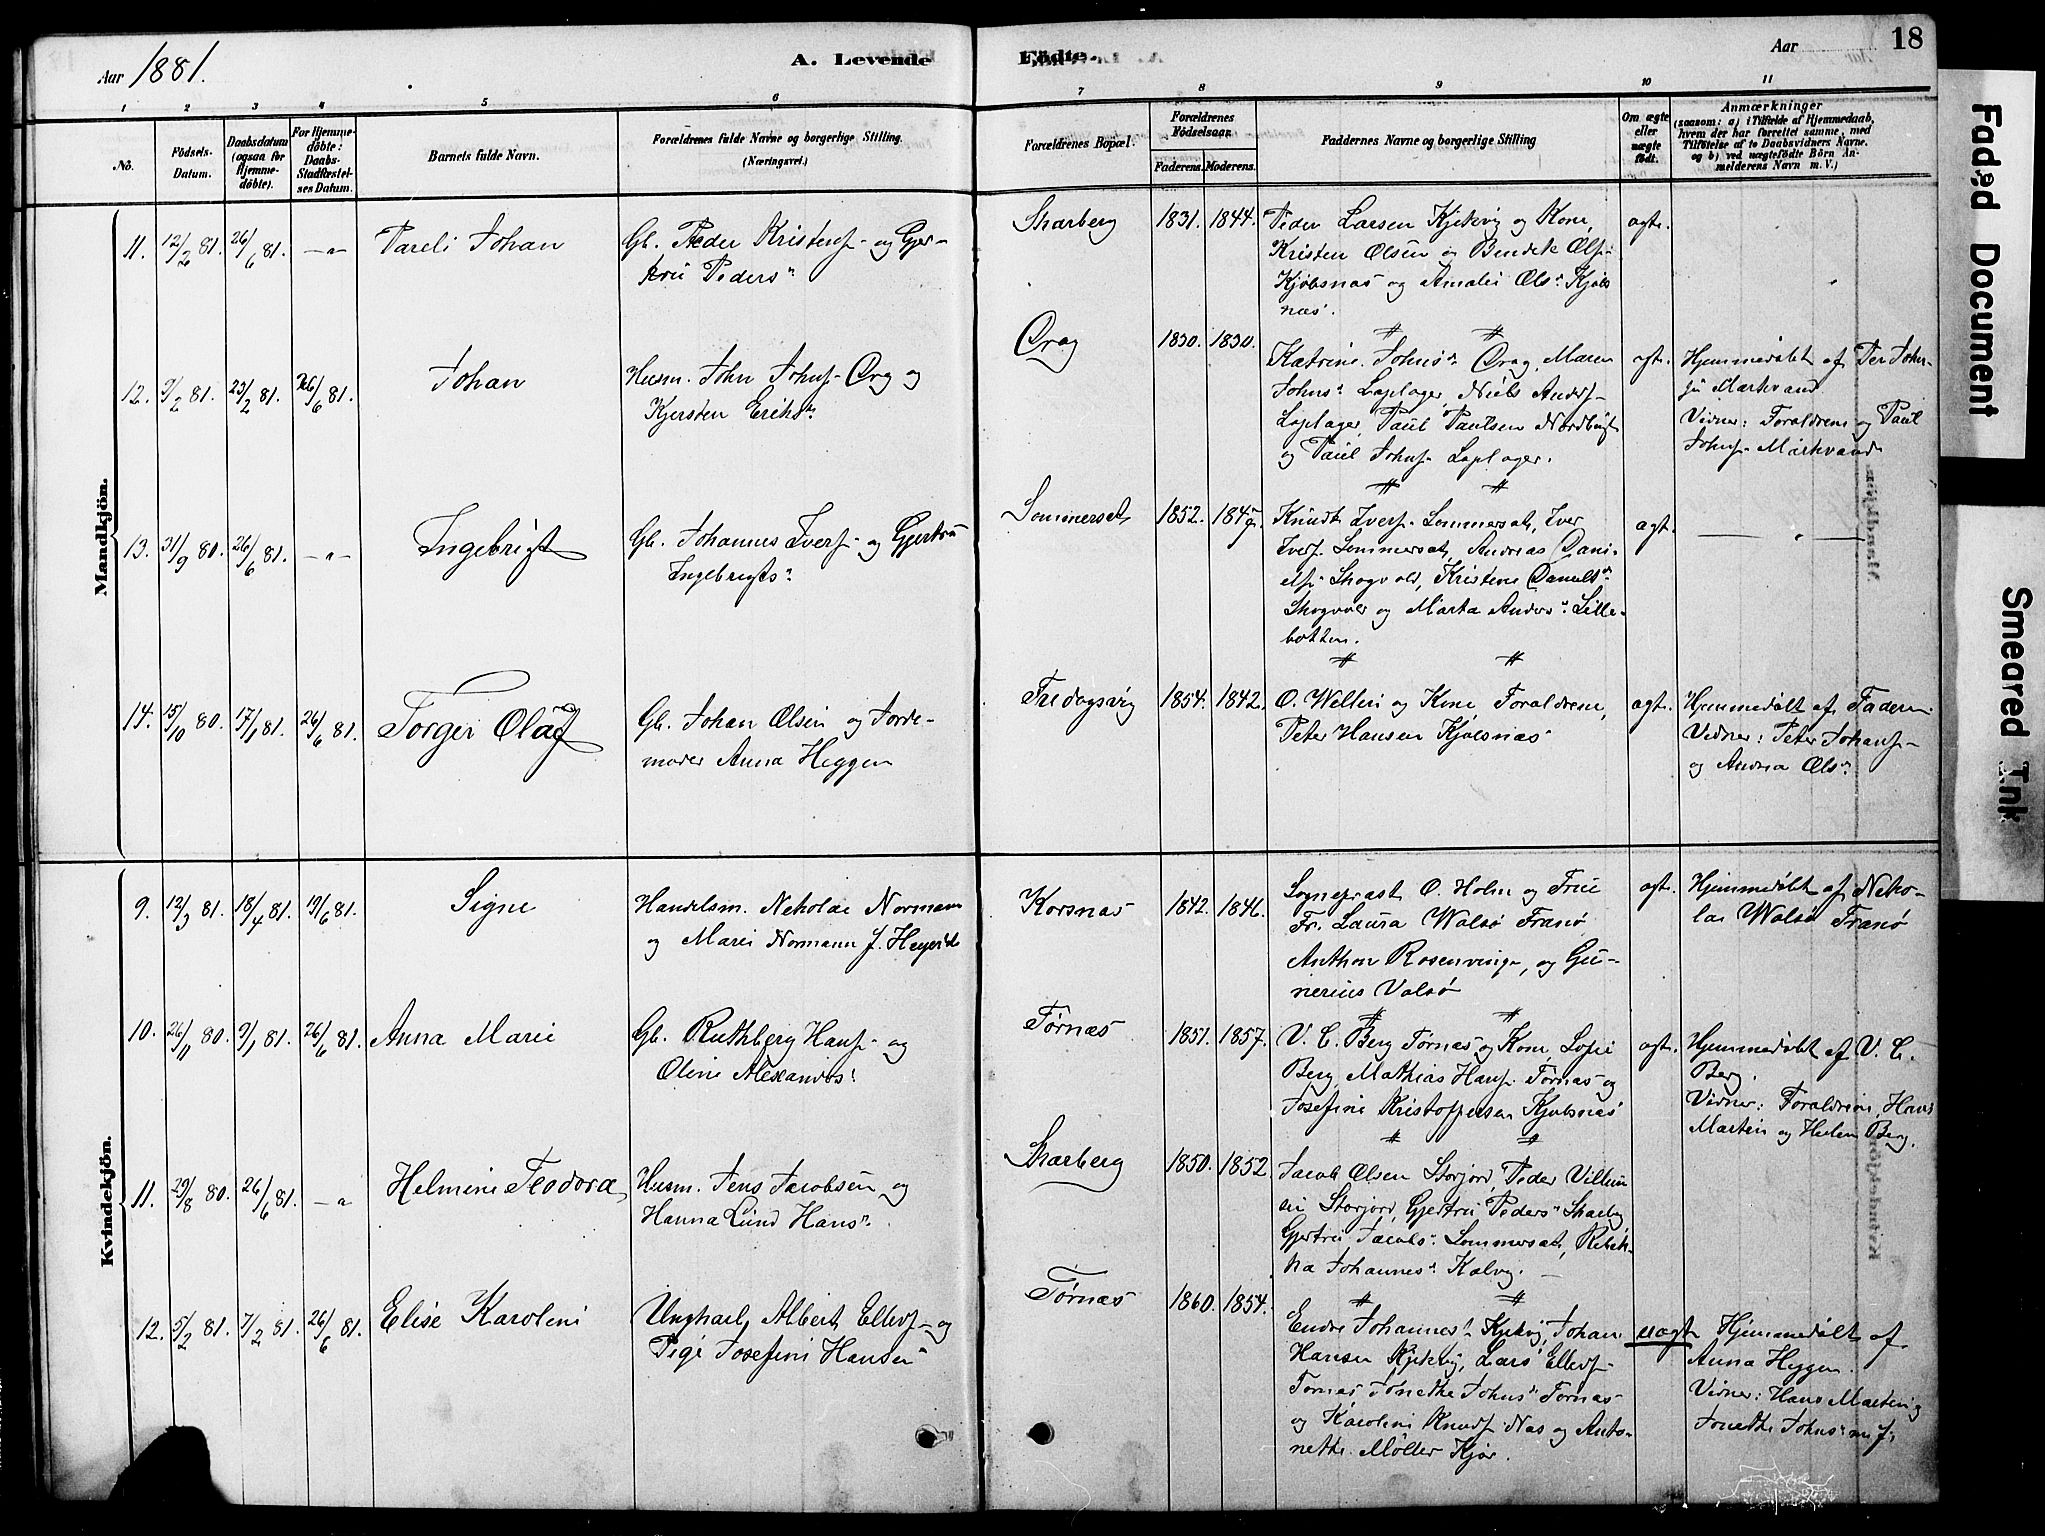 Aar 1881.
A. Levende
Födte.
Aar
18
1 2 3 4 5 6 7 8 9 10 11
No.
Födsels-
Datum.
Daabsdatum
(ogsaa for
Hjemme-
döbte).
For Hjemme-
döbte:
Daabs-
Stadfæstel-
ses Datum.
Barnets fulde Navn.
Forældrenes fulde Navne og borgerlige Stilling.
(Næringsvei.)
Forældrenes Bopæl.
Forældrenes
Födselsaar.
Faderens. Moderens.
Faddernes Navne og borgerlige Stilling
Om ægte
eller
uægte
födt.
Anmærkninger
(saasom: a) i Tilfælde af Hjemmedaab,
hvem der har forrettet samme, med
Tilföielse af to Daabsvidners Navne.
og b) ved uægtefödte Börn An-
melderens Navn m. V.)
Mandkjön.
11. 12/2 81. 26/6 81. -"- Pareli Johan
Gb. Peder Kristens- og Gjer-
trü Peders
Skarberg 1831. 1844.
Peder Larsen Kjekvig og Kone,
Kristen Olsen og Bendek Ols-
Kjöbsnæs og Amalie Ols Kjöbs
næs.
ægt.
12. 9/2 81. 23/2 81. 26/6 81. Johan
Husm. John Johns- Örag og
Kjersten Eriks
Ørag 1830. 1830.
Katrine Johns Ørag, Maren
Johns Laplager, Niels Anders-
Laplager, Paul Paulsen Nordbugt
og Paul Johns- Laplager.
ægt. Hjemmedøbt af Per John-
Markvand
Vidner: Forældrene og Paul
Johns- Markvand
13. 31/9 80. 26/6 81. -"- Ingebrigt
Gb. Johannes Ivers- og Gjertrü
Ingebrigts
Sommerset 1852.
Knudt Ivers- Sommerset, Iver
Ivers- Sommerset, Andreas Dani-
els- Skogvold, Kristine Daniels
Skogvold og Marta Anders Lille-
botten.
ægt.
14. 15/10 80. 17/1 81. 26/6 81. Torger Olaf
Gb. Johan Olsen og Jorde-
moder Anna Heggen
Fredagsvig 1854. 1842.
O. Wellen og Kone Forældrene,
Peter Hansen Kjøbsnæs
ægt. Hjemmedøbt af Faderen
Vidner: Peter Johans-
og Andrea Ols
Kvindekjön.
9. 12/3 81. 18/4 81. 19/6 81. Signe
Handelsm. Nikolai Normann
og Marie Normann f. Heyerdahl
Korsnæs 1842. 1846.
Sogneprest O. Holm og Frue
Fr. Laura Walsø Tranø
Anthon Rosenvinge, og Gu-
nerius Valsø
ægt. Hjemmedøbt af Niko-
lai Walsø Tranø
10. 26/11 80. 9/1 81. 26/6 81. Anna Marie
Gb. Ruthberg Hans- og
Oline Alexanders
Tørnæs 1851. 1857.
V. C. Berg Tørnæs og Kone, Sofie
Berg, Mathias Hans- Tørnæs og
Josefine Kristoffersen Kjøbsnæs
ægt. Hjemmedøbt af V. C.
Berg.
Vidner: Forældrene, Hans
Martin og Helene Berg.
11. 29/8 80. 26/6 81. -"- Helmine Teodora
Husm. Jens Jacobsen og
Hanna Lund Hans
Skarberg 1850. 1852
Jacob Olsen Storjord, Peder Villum-
sen Storjord, Gjertrü Peders Skarberg
Gjertrü Jacobs Sommerset, Rebek-
ka Johannes Kalvig.
12. 5/2 81. 7/2 81. 26/6 81. Elise Karoline
Ungkarl, Albert Ellefs- og
Pige Josefine Hansen
Tørnæs 1860. 1854.
Endre Johannes Kjekvig, Johan
Hansen Kjekvig, Lars Ellefs-
Tørnæs Jonetke Johns Tørnæs
og Karoline Knuds- Næs og Anto-
nette Møller Kjør.
uægt Hjemmedøbt af
Anna Heggen.
Vidner: Hans Martin og
Jonetke Johns
Faded Document
Smeared Ink